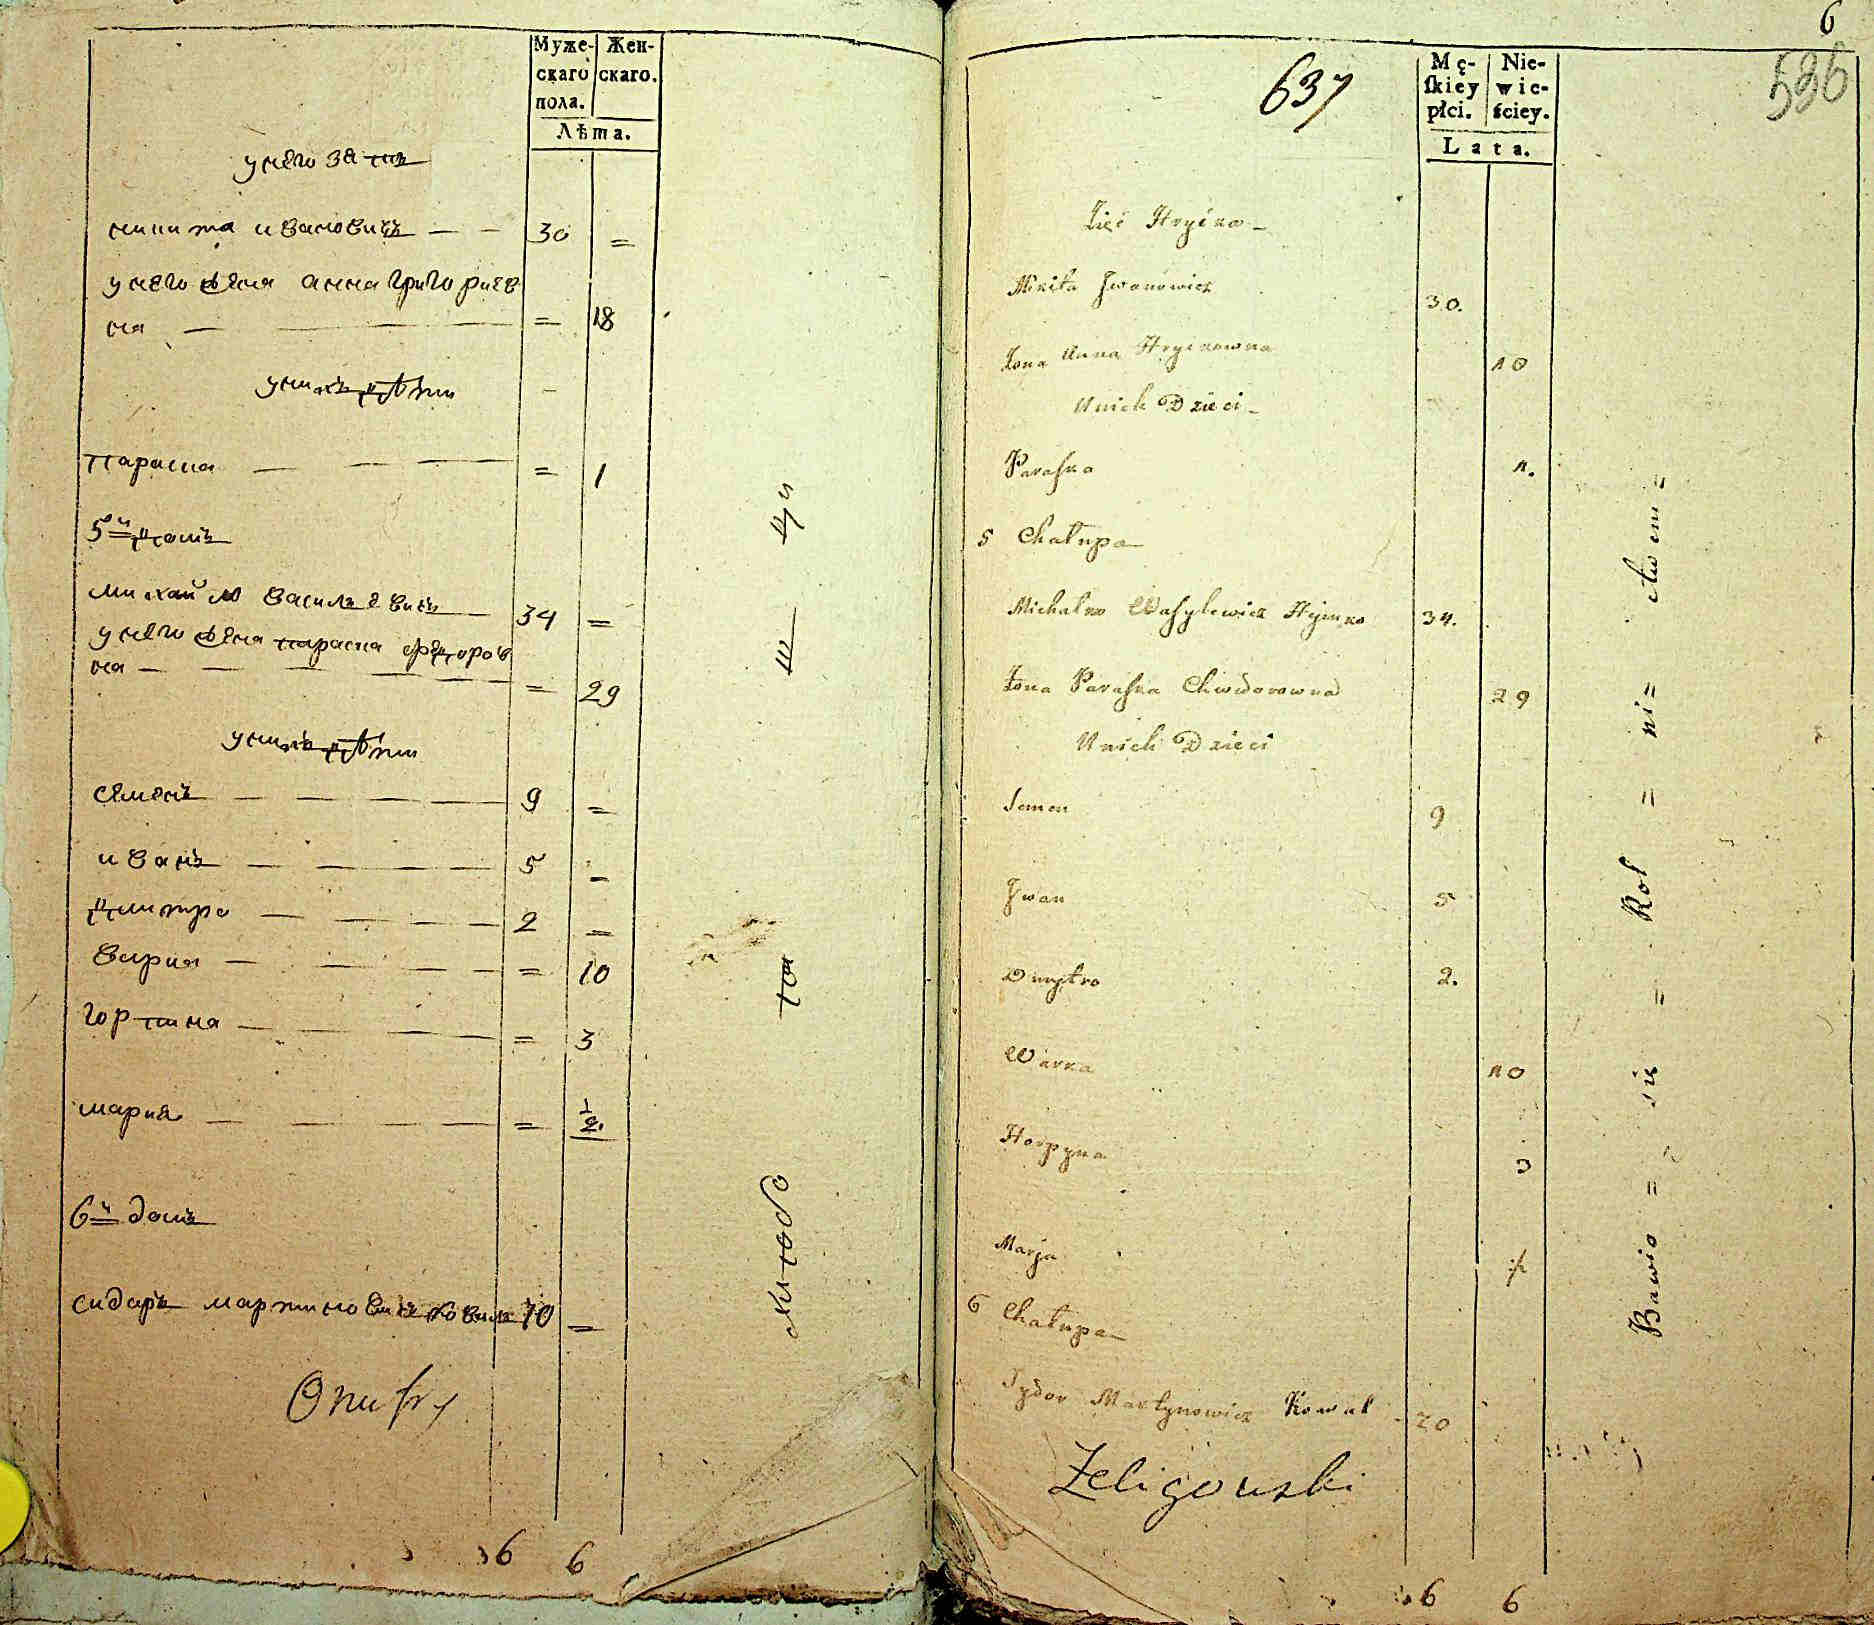 Муже-
скаго
пола.
Жен-
скаго.
Лѣта.
у него зять
никита Ивановичъ — — 30 =
у него жена анна григориев
на — — — = 18
у нихъ дѣти
параска — — — = 1
5й домъ
михайло васильевичъ — 34 =
у него жена параска федоров
на — — — — = 29
у нихъ дѣти
семенъ — — — — 9 =
иванъ — — — — 5 =
дмитро — — — — 2 =
варка — — — — = 10
горпина — — — — = 3
мария — — — — = 1/2
6й домъ
сидоръ мартиновичъ коваль 70 =
Onufry
6 6
6
637
536
Mę-
ſkiey
płci.
Nie-
wie-
ściey.
Lata.
Zięć Hryćka
Mikita Jwanowicz 30.
Żona Anna Hryckowna 18
U nich Dzieci
Paraſka 1.
5 Chałupa
Michałko Waſylewicz 34.
Żona Paraſka Chwedorowna 29
U nich Dzieci
Semen 9
Jwan 5
Dmytro 2.
Warka 10
Horpyna 3
Marja ½
6 Chałupa
Sydor Martynowicz Kowal 70
Żeligowski
6 6